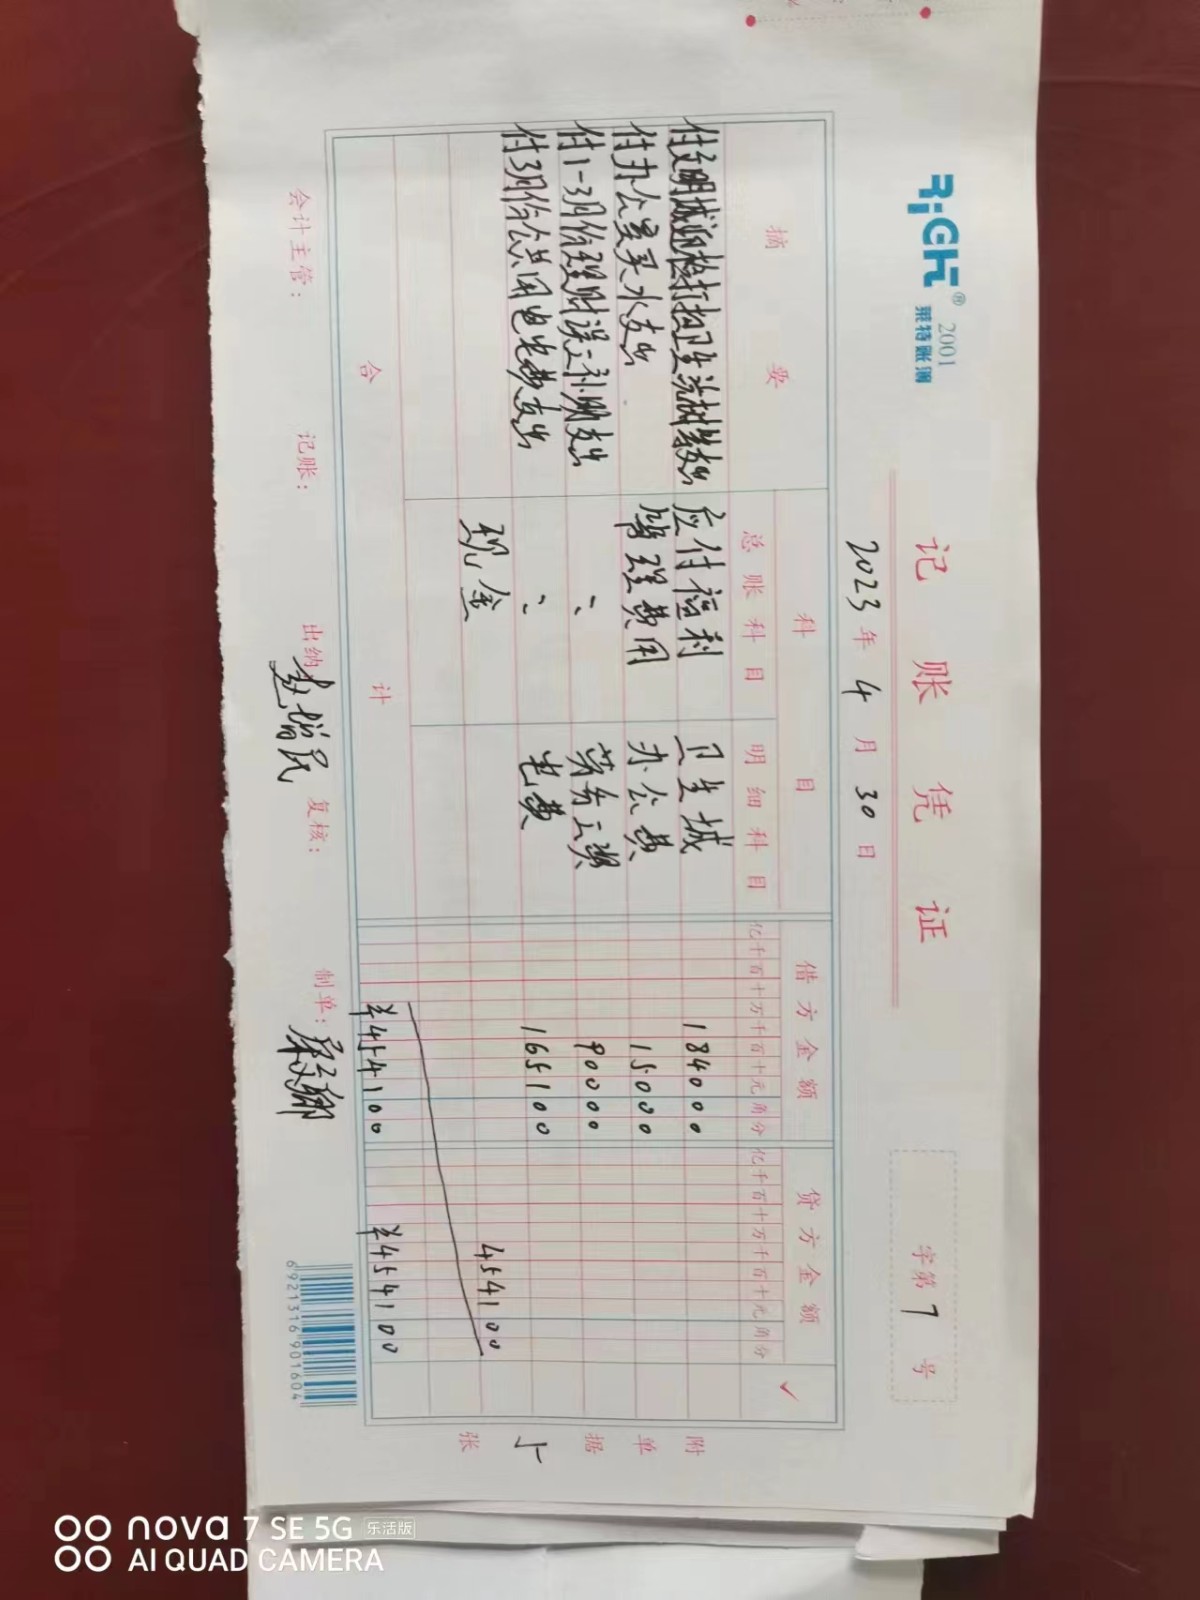 RiGHT® 2001
莱特账簿
记账凭证
2023年4月30日
字第7号
摘要 科目 借方金额 贷方金额 ✓
总账科目 明细科目 亿千百十万千百十元角分 亿千百十万千百十元角分
付文明城迎检打扫卫生洗树紫支出 应付福利 卫生城 184000
付办公室买水支出 管理费用 办公费 15000
付1-3月份理财误工补助支出 〃 劳务工资 90000
付3月份公共用电电费支出 〃 电费 165100
现金 454100
合计 ¥454100 ¥454100
附单据 张
会计主管: 记账: 出纳: 赵增民 复核: 制单:
6921316901604
nova 7 SE 5G 乐活版
AI QUAD CAMERA